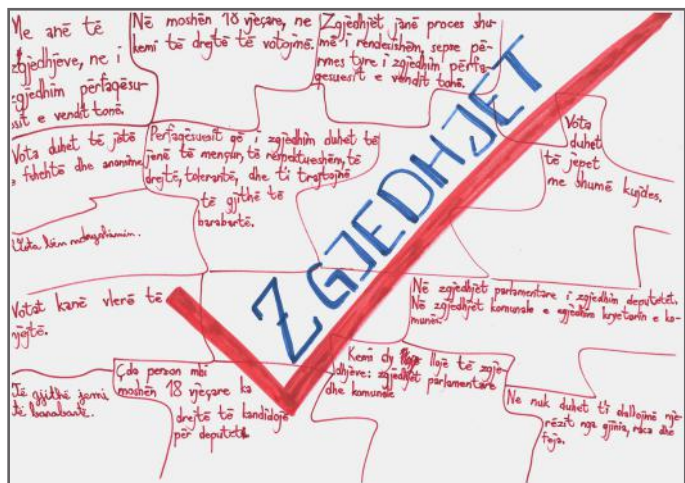 Me anë të
zgjedhjeve, ne i
zgjedhim përfaqësu-
esit e vendit tonë.
Në moshën 18 vjeçare, ne
kemi të drejtë të votojmë.
Zgjedhjet janë proces shu-
më i rendesishëm, sepse për-
mes tyre i zgjedhim përfa-
qesuesit e vendit tonë.
Vota duhet të jetë
e fshehtë dhe anonime.
Perfaqësuesit që i zgjedhim duhet të
jenë të mençur, të respektueshëm, të
drejtë, tolerantë, dhe t'i trajtojnë
të gjithë të
barabartë.
Vota
duhet
të jepet
me shumë kujdes.
ZGJEDHJET
Vota bën ndryshimin.
Votat kanë vlerë të
njejtë.
Në zgjedhjet parlamentare i zgjedhim deputetët.
Në zgjedhjet komunale e zgjedhim kryetarin e ko-
munës.
Të gjithë jemi
të barabartë.
Çdo person mbi
moshën 18 vjeçare ka
drejtë të kandidojë
për deputet.
Kemi dy lloje të zgje-
dhjève: zgjedhjet parlamentare
dhe komunale
Ne nuk duhet t'i dallojmë nje-
rëzit nga gjinia, raca dhe
feja.